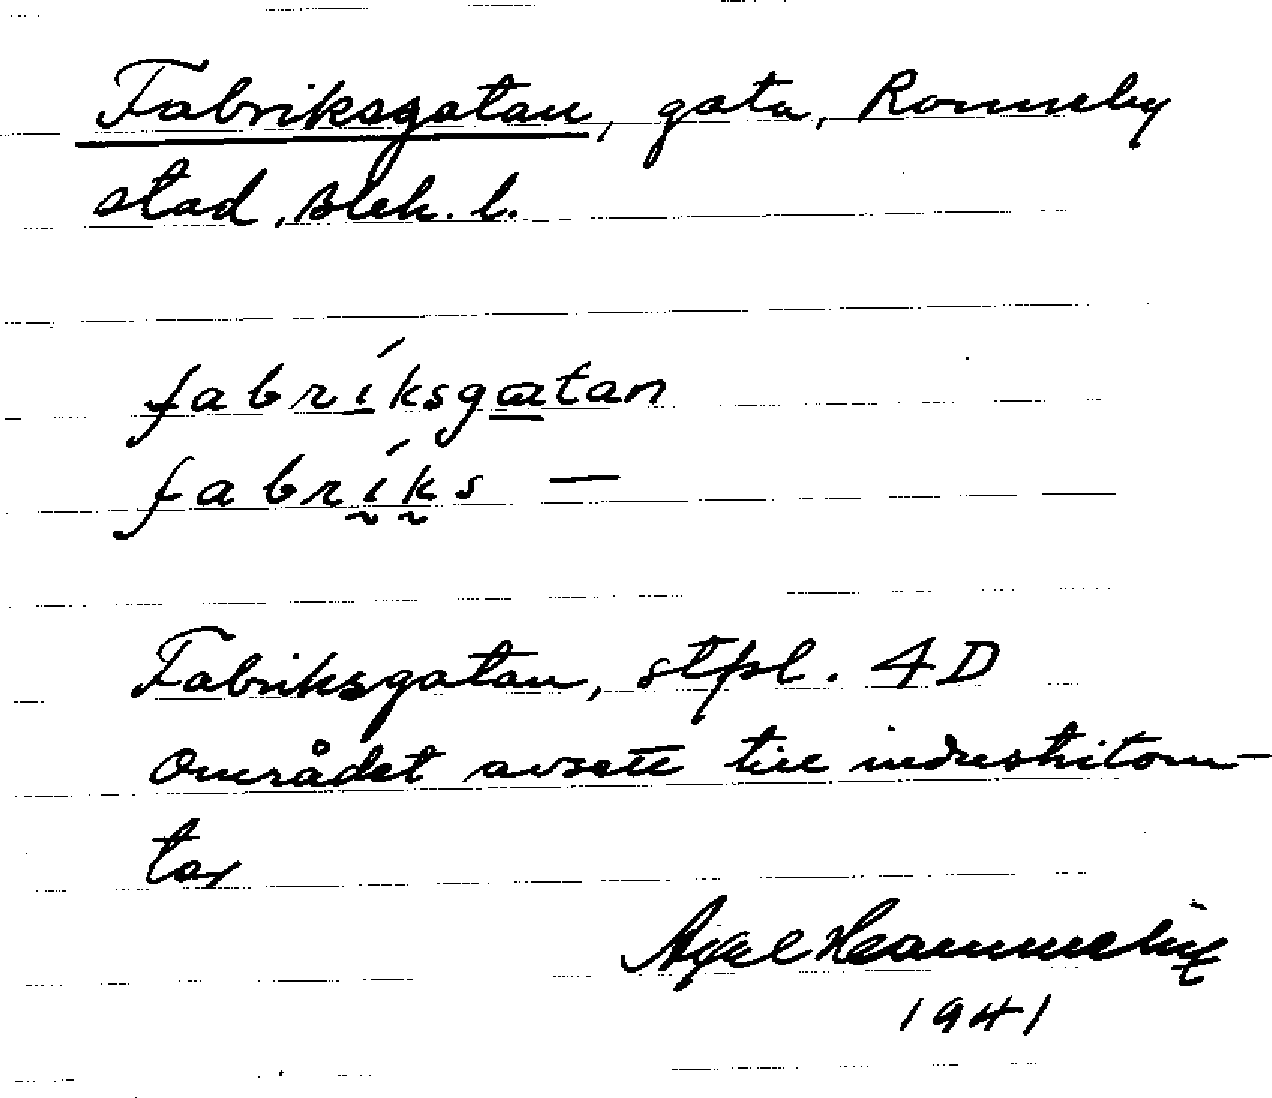 Fabriksgatan, gata, Ronneby
stad, Blek. l.
fabríksgatan
fabríks —
Fabriksgatan, stpl. 4D
Området avsett till industritom-
ter
Axel
1941